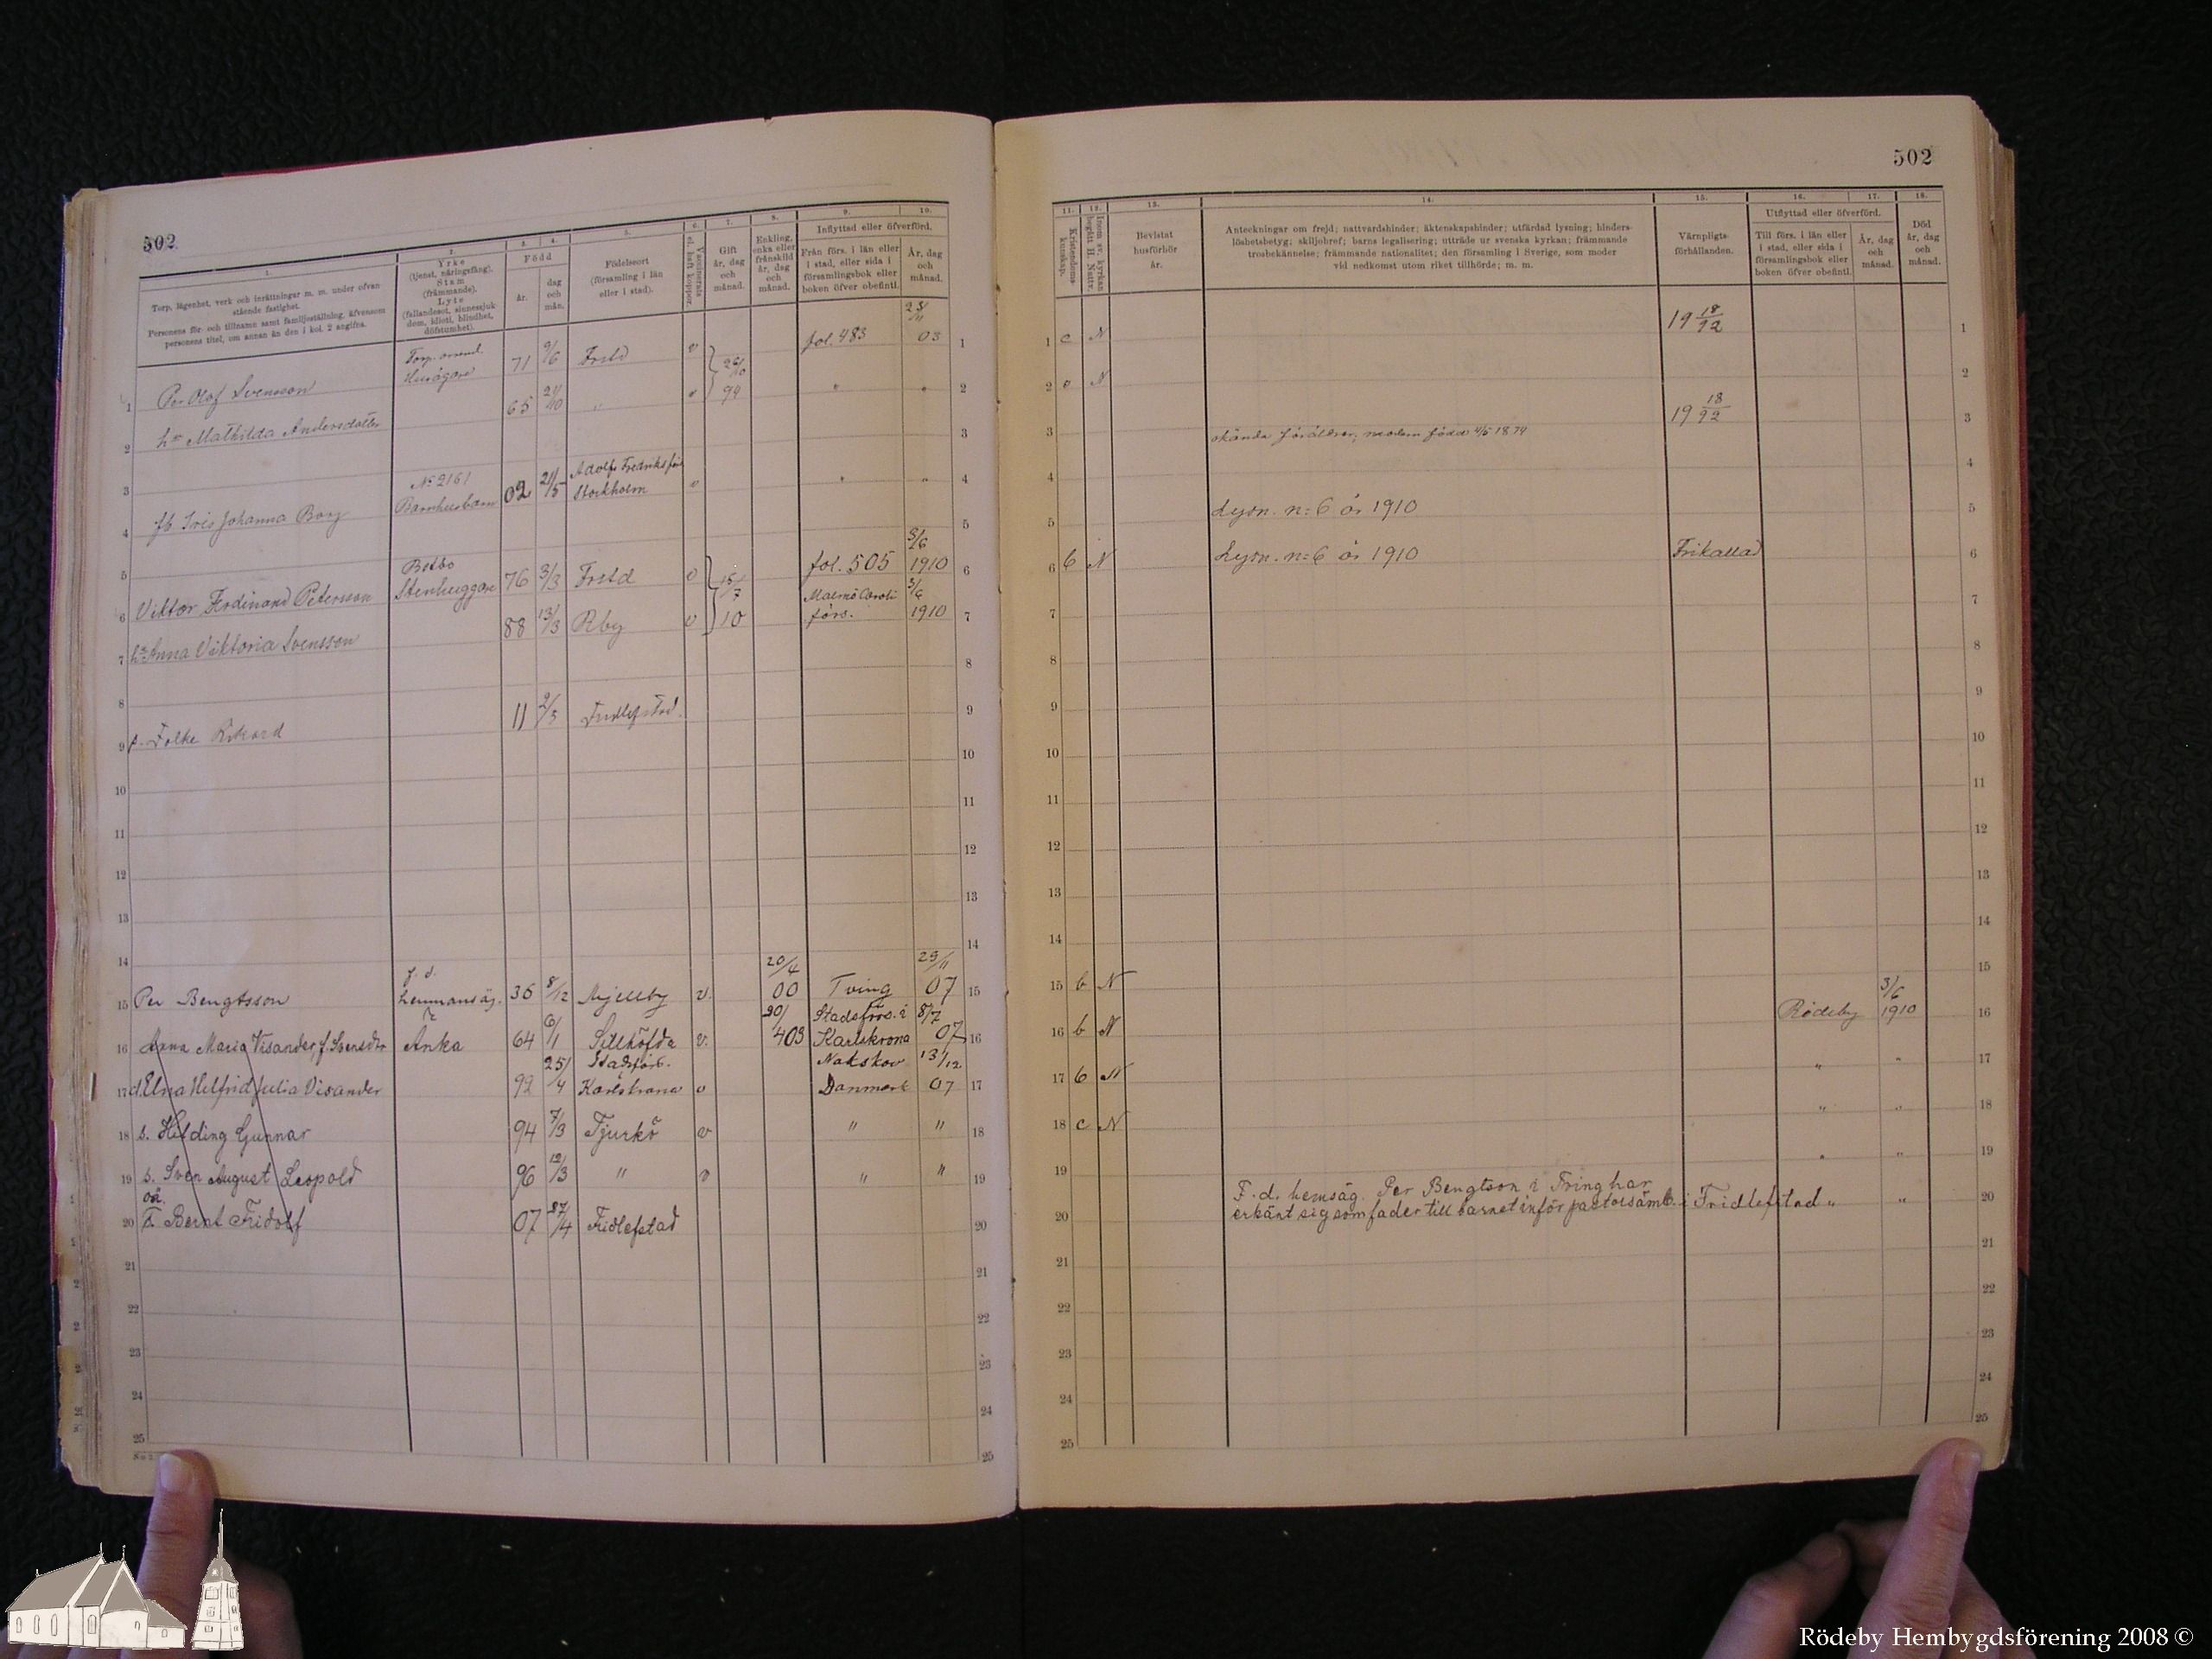 502
1.
Torp, lägenhet, verk och inrättningar m. m. under ofvan
stående fastighet.
Personens för- och tillnamn samt familjeställning, äfvensom
personens titel, om annan än den i kol. 2 angifna.
2.
Yrke
(tjenst, näringsfång).
Stam
(främmande).
Lyte
(fallandesot, sinnessjuk-
dom, idioti, blindhet,
döfstumhet).
3.
4.
Född
år.
dag
och
mån.
5.
Födelseort
(församling i län
eller i stad).
6.
Vaccinerats
el. haft koppor.
7.
Gift
år, dag
och
månad.
8.
Enkling,
enka eller
frånskild
år, dag
och
månad.
9.
10.
Inflyttad eller öfverförd.
Från förs. i län eller
i stad, eller sida i
församlingsbok eller
boken öfver obefintl.
År, dag
och
månad.
1 Per Olof Svensson Torp. arrend. Husägare 71 9/6 Frstd v 26/10 fol. 483 03 1
2 h~ Mathilda Andersdotter 65 21/10 " v 94 " " 2
3 3
4 fb Iris Johanna Borg No 2161 Barnhusbarn 02 21/5 Adolfs Fredriks förs Stockholm v " " 4
5 5
6 Viktor Ferdinand Peterson Stenhuggare 76 3/3 Frstd v fol. 505 1910 6
7 h~ Anna Viktoria Svensson 88 13/3 Rby v 10 Malmö Caroli förs. 1910 7
8 8
9 s. Folke Rikard 11 2/3 Fridlefstad. 9
10 10
11 11
12 12
13 13
14 14
15 Per Bengtsson f. d. hemmansäg. 36 8/12 Mjellby v. 20/4 00 Tving 29/11 07 15
16 Anna Maria Visander f. Svensdr Enka 64 6/1 Sillhöfda v. 403 Stadsförs. i Karlskrona 8/7 07 16
17 d. Elna Helfrid Julia Visander 92 25/4 Stadsförs. Karlskrona v Nakskov Danmark 13/12 07 17
18 s. Hilding Gunnar 94 7/3 Tjurkö v " " 18
19 s. Sven August Leopold 96 12/3 " v " " 19
20 oä. s. Bernt Fridolf 07 27/4 Fridlefstad 20
21 21
22 22
23 23
24 24
25 25
502
11.
Kristendoms-
kunskap.
12.
Inom sv. kyrkan
begått H. Nattv.
13.
Bevistat
husförhör
år.
14.
Anteckningar om frejd; nattvardshinder; äktenskapshinder; utfärdad lysning; hinders-
löshetsbetyg; skiljobref; barns legalisering; utträde ur svenska kyrkan; främmande
trosbekännelse; främmande nationalitet; den församling i Sverige, som moder
vid nedkomst utom riket tillhörde; m. m.
15.
Värnpligts-
förhållanden.
16.
17.
Utflyttad eller öfverförd.
Till förs. i län eller
i stad, eller sida i
församlingsbok eller
boken öfver obefintl.
År, dag
och
månad.
18.
Död
år, dag
och
månad.
1 c N 19 18/92 1
2 N 2
3 okända föräldrar; modern född 4/5 1874 19 18/92 3
4 4
5 Lysn. n:6 år 1910 5
6 b N Lysn. n:6 år 1910 Frikallad 6
7 7
8 8
9 9
10 10
11 11
12 12
13 13
14 14
15 b N 15
16 b N Rödeby 3/6 1910 16
17 b N " " 17
18 c N " " 18
19 " " 19
F. d. hemsäg. Per Bengtson i Tving har
20 erkänt sig som fader till barnet inför pastorsämb. i Fridlefstad " " 20
21 21
22 22
23 23
24 24
25 25
Rödeby Hembygdsförening 2008 ©